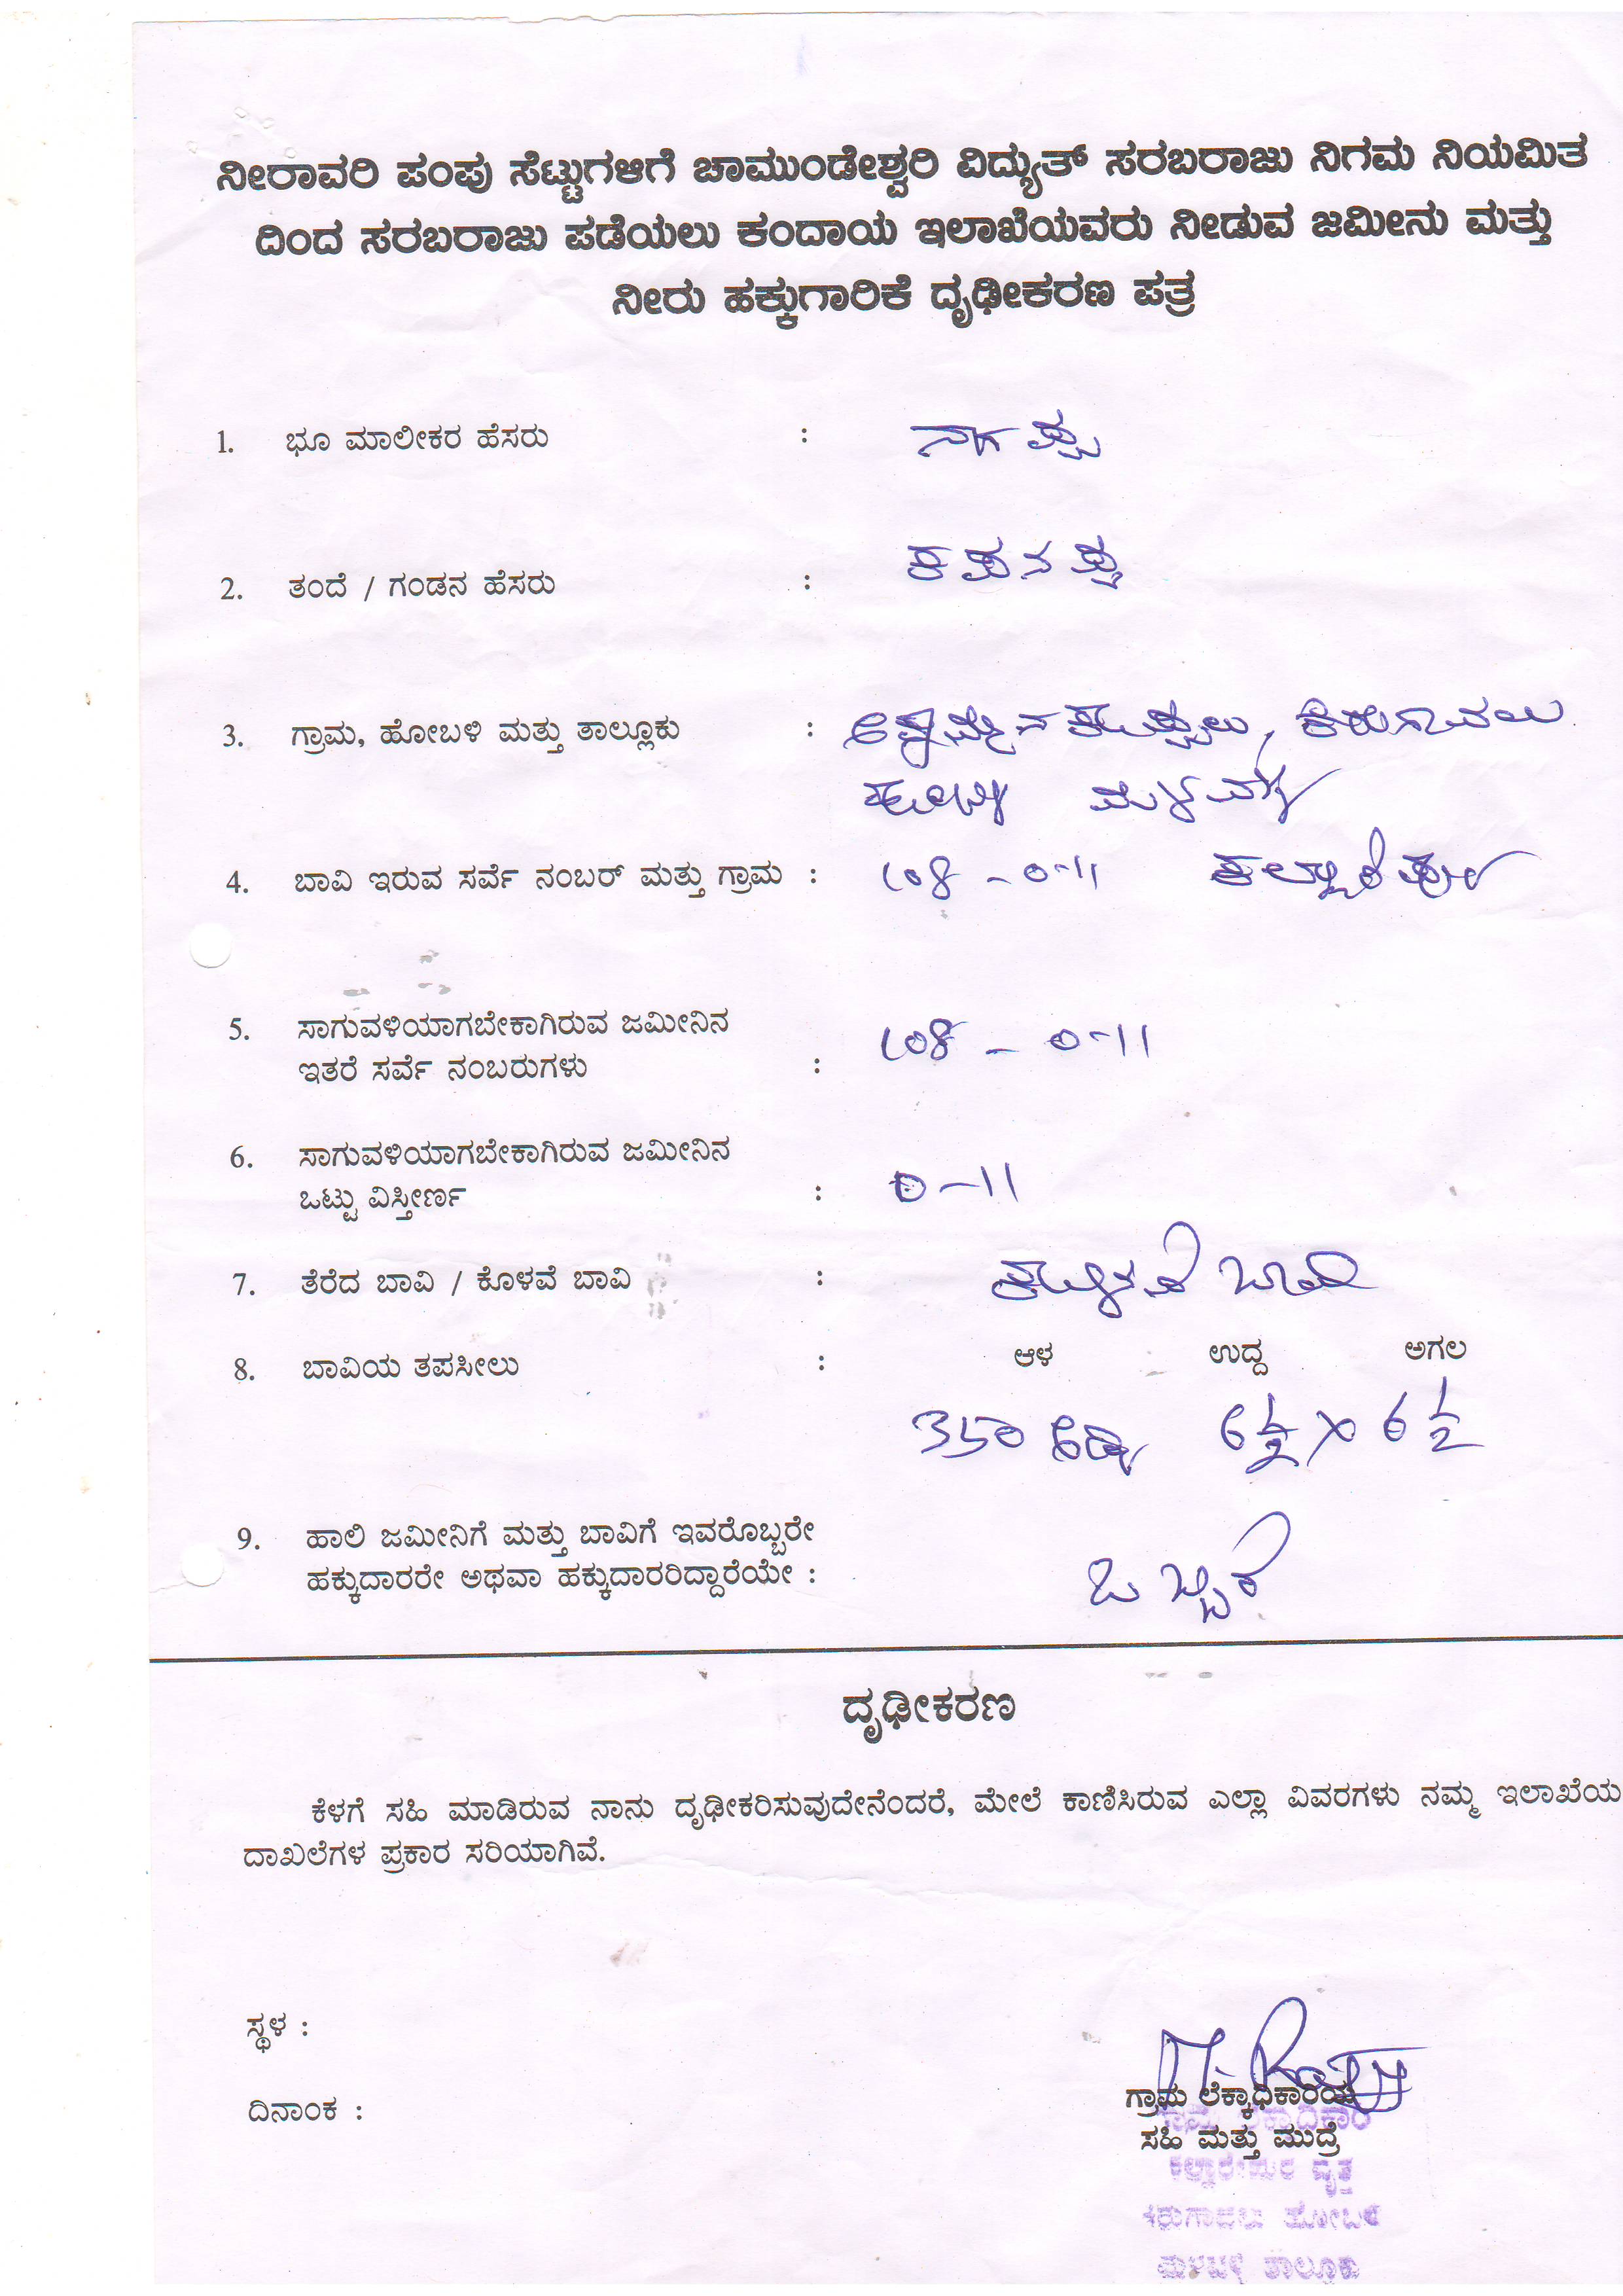 ನೀರಾವರಿ ಪಂಪು ಸೆಟ್ಟುಗಳಿಗೆ ಚಾಮುಂಡೇಶ್ವರಿ ವಿದ್ಯುತ್ ಸರಬರಾಜು ನಿಗಮ ನಿಯಮಿತ
ದಿಂದ ಸರಬರಾಜು ಪಡೆಯಲು ಕಂದಾಯ ಇಲಾಖೆಯವರು ನೀಡುವ ಜಮೀನು ಮತ್ತು
ನೀರು ಹಕ್ಕುಗಾರಿಕೆ ದೃಢೀಕರಣ ಪತ್ರ
1. ಭೂ ಮಾಲೀಕರ ಹೆಸರು :
2. ತಂದೆ / ಗಂಡನ ಹೆಸರು :
3. ಗ್ರಾಮ, ಹೋಬಳಿ ಮತ್ತು ತಾಲ್ಲೂಕು : ಕಿರುಗಾವಲು
ಹೋಬಳಿ ಮಳವಳ್ಳಿ
4. ಬಾವಿ ಇರುವ ಸರ್ವೆ ನಂಬರ್ ಮತ್ತು ಗ್ರಾಮ : 108 - 0-11
5. ಸಾಗುವಳಿಯಾಗಬೇಕಾಗಿರುವ ಜಮೀನಿನ
ಇತರೆ ಸರ್ವೆ ನಂಬರುಗಳು : 108 - 0-11
6. ಸಾಗುವಳಿಯಾಗಬೇಕಾಗಿರುವ ಜಮೀನಿನ
ಒಟ್ಟು ವಿಸ್ತೀರ್ಣ : 0-11
7. ತೆರೆದ ಬಾವಿ / ಕೊಳವೆ ಬಾವಿ : ಕೊಳವೆ ಬಾವಿ
8. ಬಾವಿಯ ತಪಸೀಲು : ಆಳ ಉದ್ದ ಅಗಲ
350 ಅಡಿ 6 1/2 X 6 1/2
9. ಹಾಲಿ ಜಮೀನಿಗೆ ಮತ್ತು ಬಾವಿಗೆ ಇವರೊಬ್ಬರೇ
ಹಕ್ಕುದಾರರೇ ಅಥವಾ ಹಕ್ಕುದಾರರಿದ್ದಾರೆಯೇ : ಒಬ್ಬರೆ
ದೃಢೀಕರಣ
ಕೆಳಗೆ ಸಹಿ ಮಾಡಿರುವ ನಾನು ದೃಢೀಕರಿಸುವುದೇನೆಂದರೆ, ಮೇಲೆ ಕಾಣಿಸಿರುವ ಎಲ್ಲಾ ವಿವರಗಳು ನಮ್ಮ ಇಲಾಖೆಯ
ದಾಖಲೆಗಳ ಪ್ರಕಾರ ಸರಿಯಾಗಿವೆ.
ಸ್ಥಳ :
ದಿನಾಂಕ :
ಗ್ರಾಮ ಲೆಕ್ಕಾಧಿಕಾರಿಯ
ಸಹಿ ಮತ್ತು ಮುದ್ರೆ
ವೃತ್ತ
ಹೋಬಳಿ
ತಾಲ್ಲೂಕು